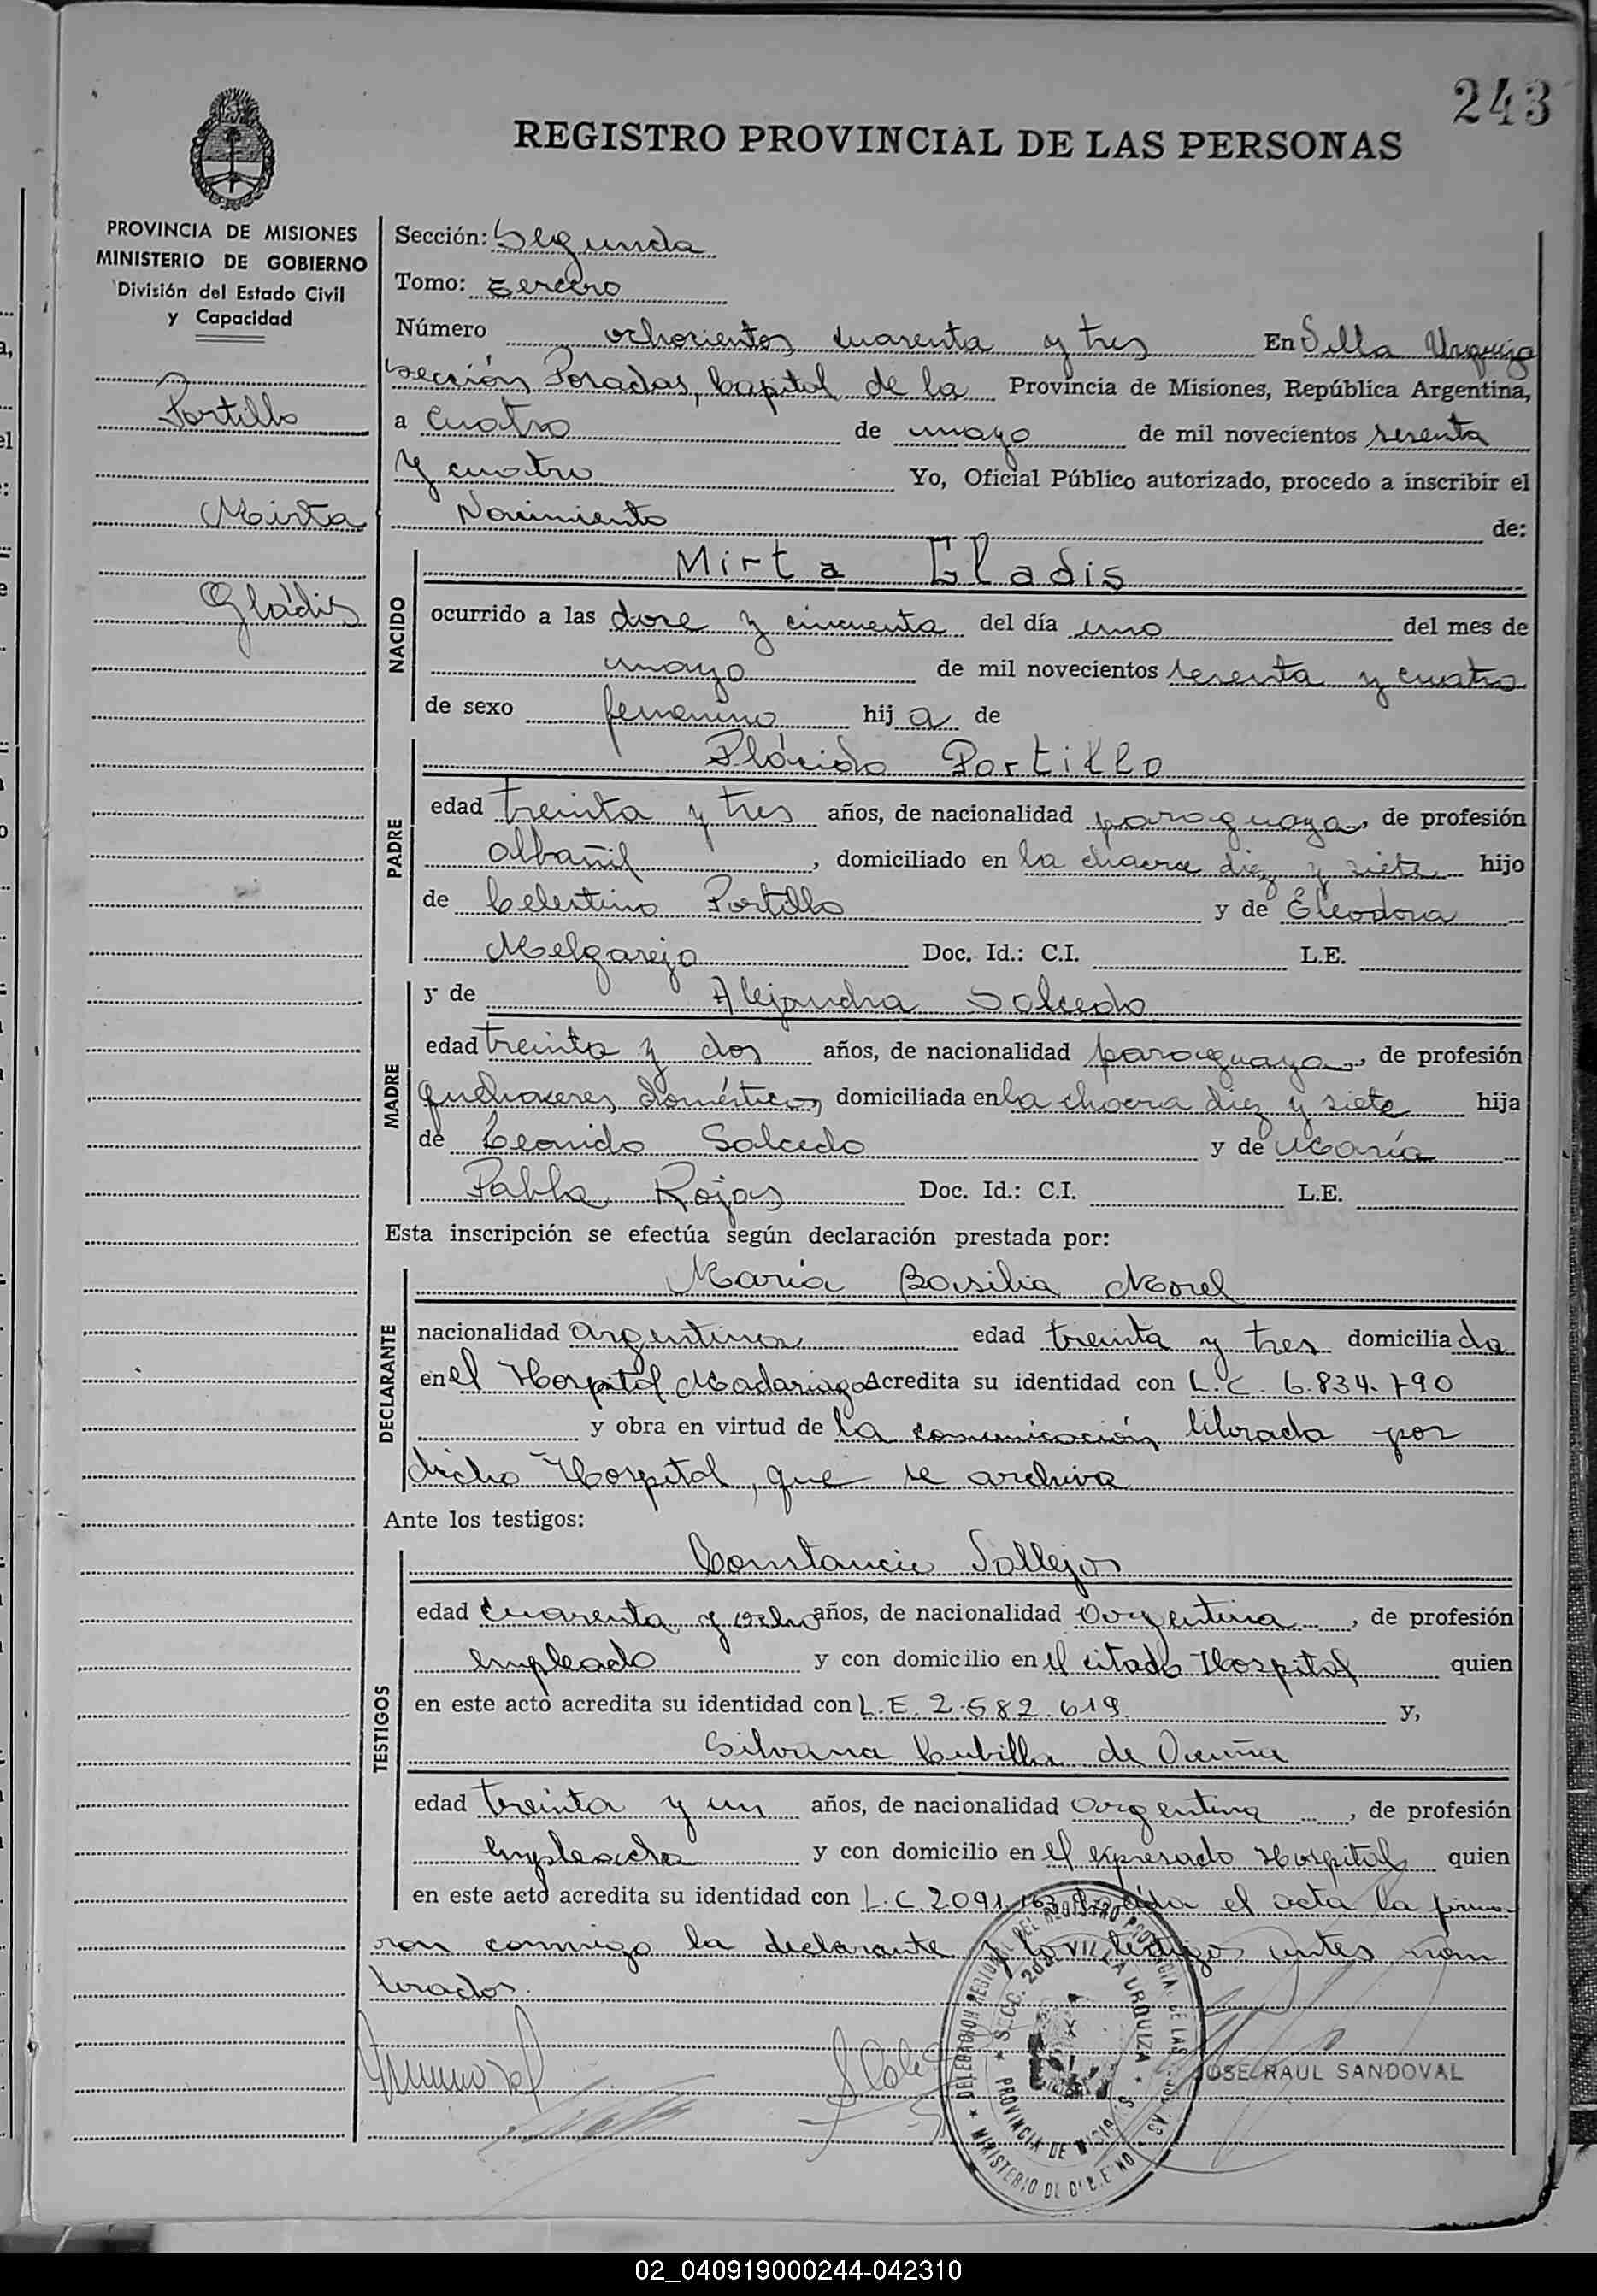 243
REGISTRO PROVINCIAL DE LAS PERSONAS
PROVINCIA DE MISIONES
MINISTERIO DE GOBIERNO
División del Estado Civil
y Capacidad
Portillo
Mirta
Gladis
Sección: Segunda
Tomo: Tercero
Número ochocientos cuarenta y tres En Villa Urquiza
Sección Posadas, Capital de la Provincia de Misiones, República Argentina,
a cuatro de mayo de mil novecientos sesenta
y cuatro Yo, Oficial Público autorizado, procedo a inscribir el
Nacimiento de:
NACIDO
Mirta Gladis
ocurrido a las doce y cincuenta del día uno del mes de
mayo de mil novecientos sesenta y cuatro
de sexo femenino hija de
PADRE
Plácido Portillo
edad treinta y tres años, de nacionalidad paraguaya, de profesión
albañil, domiciliado en la chacra diez y siete hijo
de Celestino Portillo y de Eleodora
Melgarejo Doc. Id.: C.I. L.E.
MADRE
y de Alejandra Salcedo
edad treinta y dos años, de nacionalidad paraguaya, de profesión
quehaceres domésticos, domiciliada en la chacra diez y siete hija
de Leonido Salcedo y de María
Pabla Rojas Doc. Id.: C.I. L.E.
Esta inscripción se efectúa según declaración prestada por:
DECLARANTE
María Basilia Morel
nacionalidad argentina edad treinta y tres domiciliada
en el Hospital Madariaga Acredita su identidad con L.C. 6.834.790
y obra en virtud de la comunicación librada por
dicho Hospital, que se archiva
Ante los testigos:
TESTIGOS
Constancio Vallejos
edad cuarenta y ocho años, de nacionalidad argentina, de profesión
empleado y con domicilio en el citado Hospital quien
en este acto acredita su identidad con L.E. 2.582.619 y,
Silvana Cubilla de Acuña
edad treinta y un años, de nacionalidad argentina, de profesión
empleada y con domicilio en el expresado Hospital quien
en este acto acredita su identidad con L.C. 2.091.163 Leída el acta la firma-
ron conmigo la declarante y los testigos antes nom
brados.
DELEGACION DEL REGISTRO PROVINCIAL DE LAS
SECC. 2da VILLA URQUIZA
PROVINCIA DE MISIONES
MINISTERIO DE GOBIERNO
JOSE RAUL SANDOVAL
02_040919000244-042310